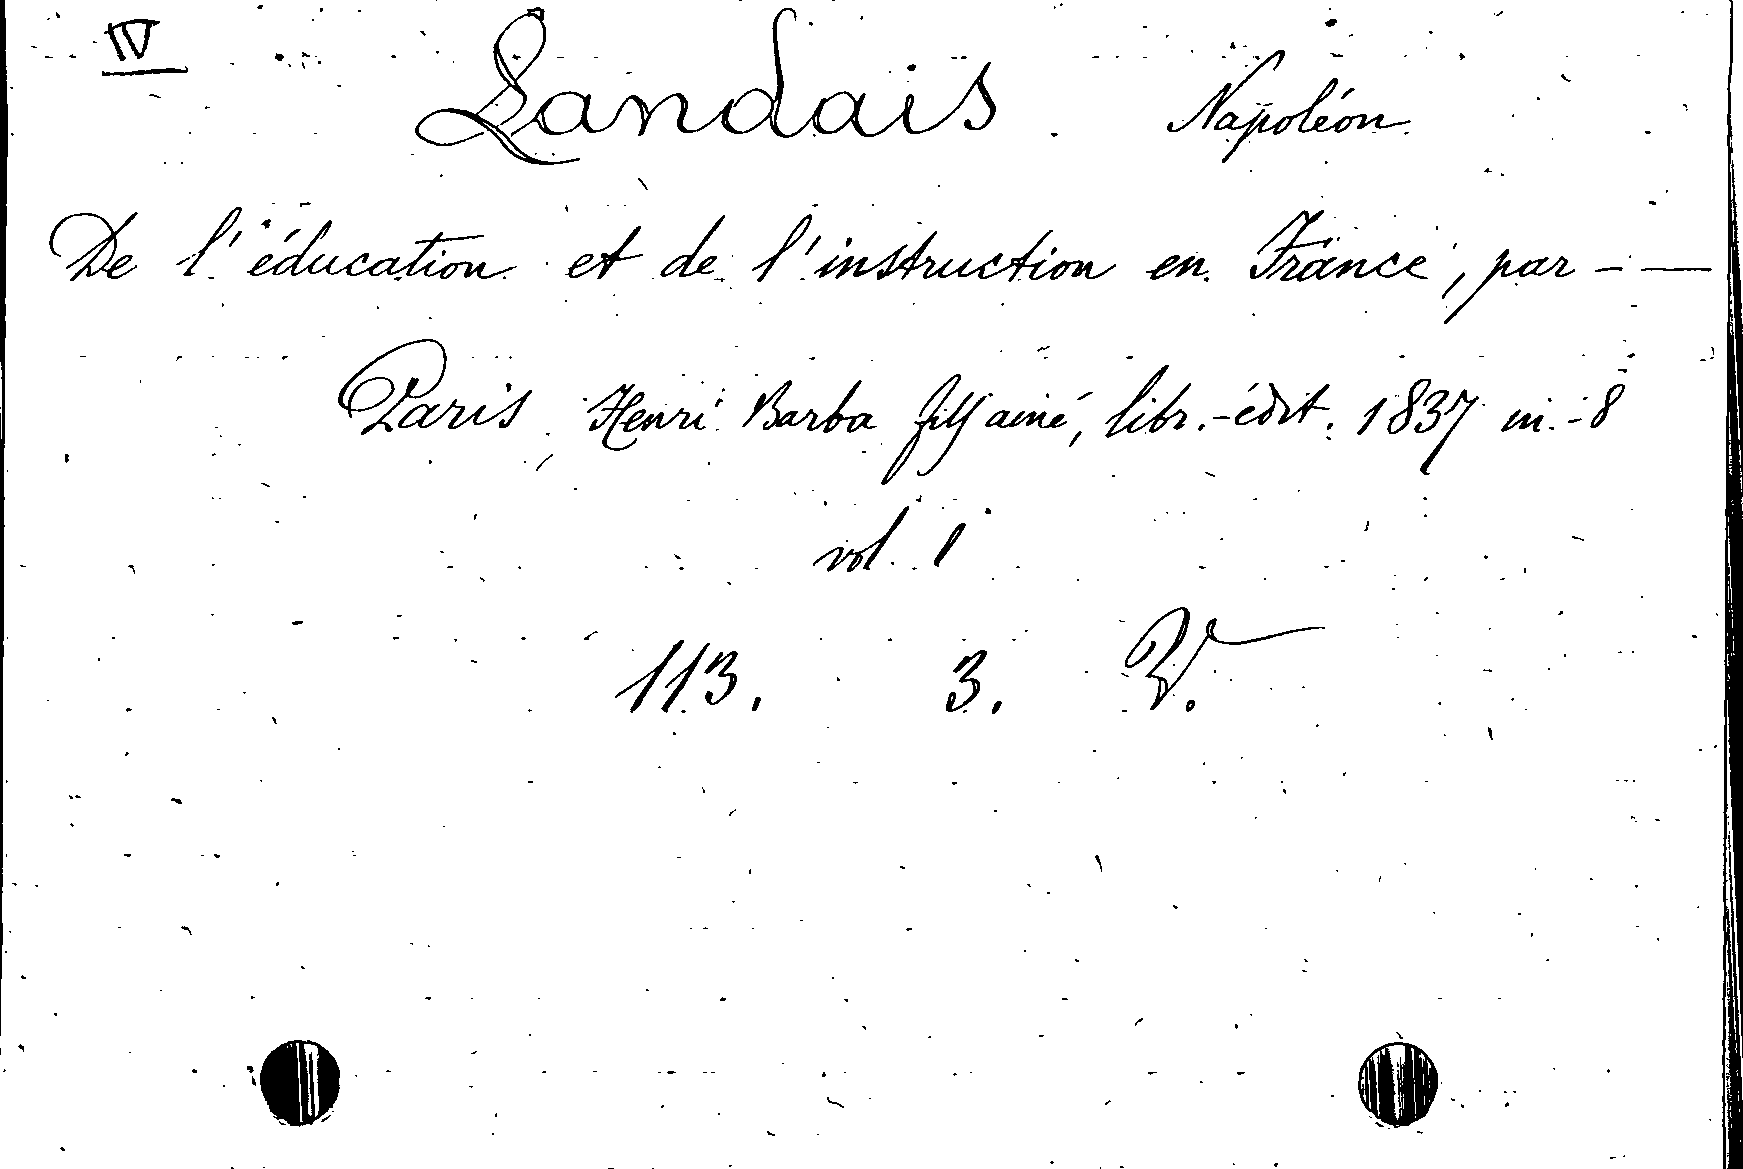 IV
Landais Napoléon
De l'éducation et de l'instruction en France, par - —
Paris Henri Barba fils ainé, libr.-édit. 1837 in.-8
vol. 1
113. 3. V.